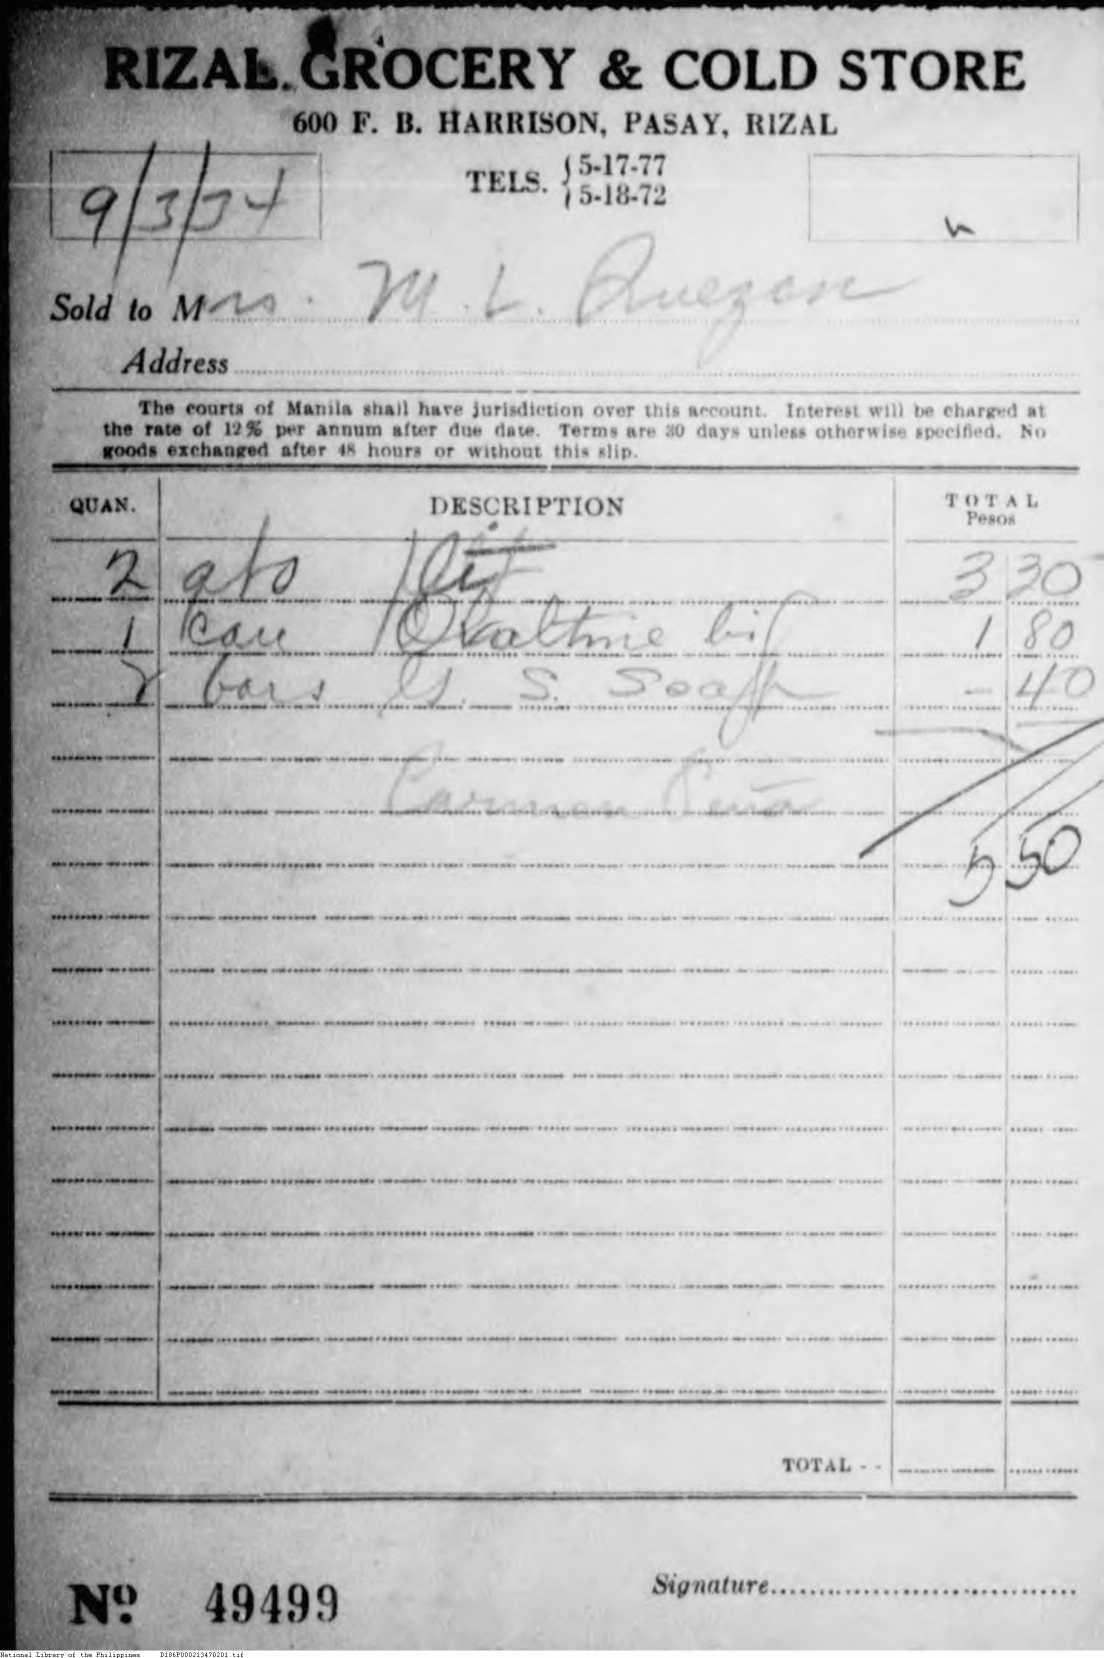 RIZAL GROCERY & COLD STORE
600 F. B. HARRISON, PASAY, RIZAL
TELS. 5-17-77
5-18-72
9/3/34
Sold to Mrs. M. L. Quezon
Address
The courts of Manila shall have jurisdiction over this account. Interest will be charged at
the rate of 12% per annum after due date. Terms are 30 days unless otherwise specified. No
goods exchanged after 48 hours or without this slip.
QUAN. DESCRIPTION TOTAL
Pesos
2 3 30
1 can Ovaltine big 1 80
2 bars G. S. Soap - 40
Carmen Peña
5 50
TOTAL - -
Signature
No. 49499
National Library of the Philippines D186P000213470201.tif